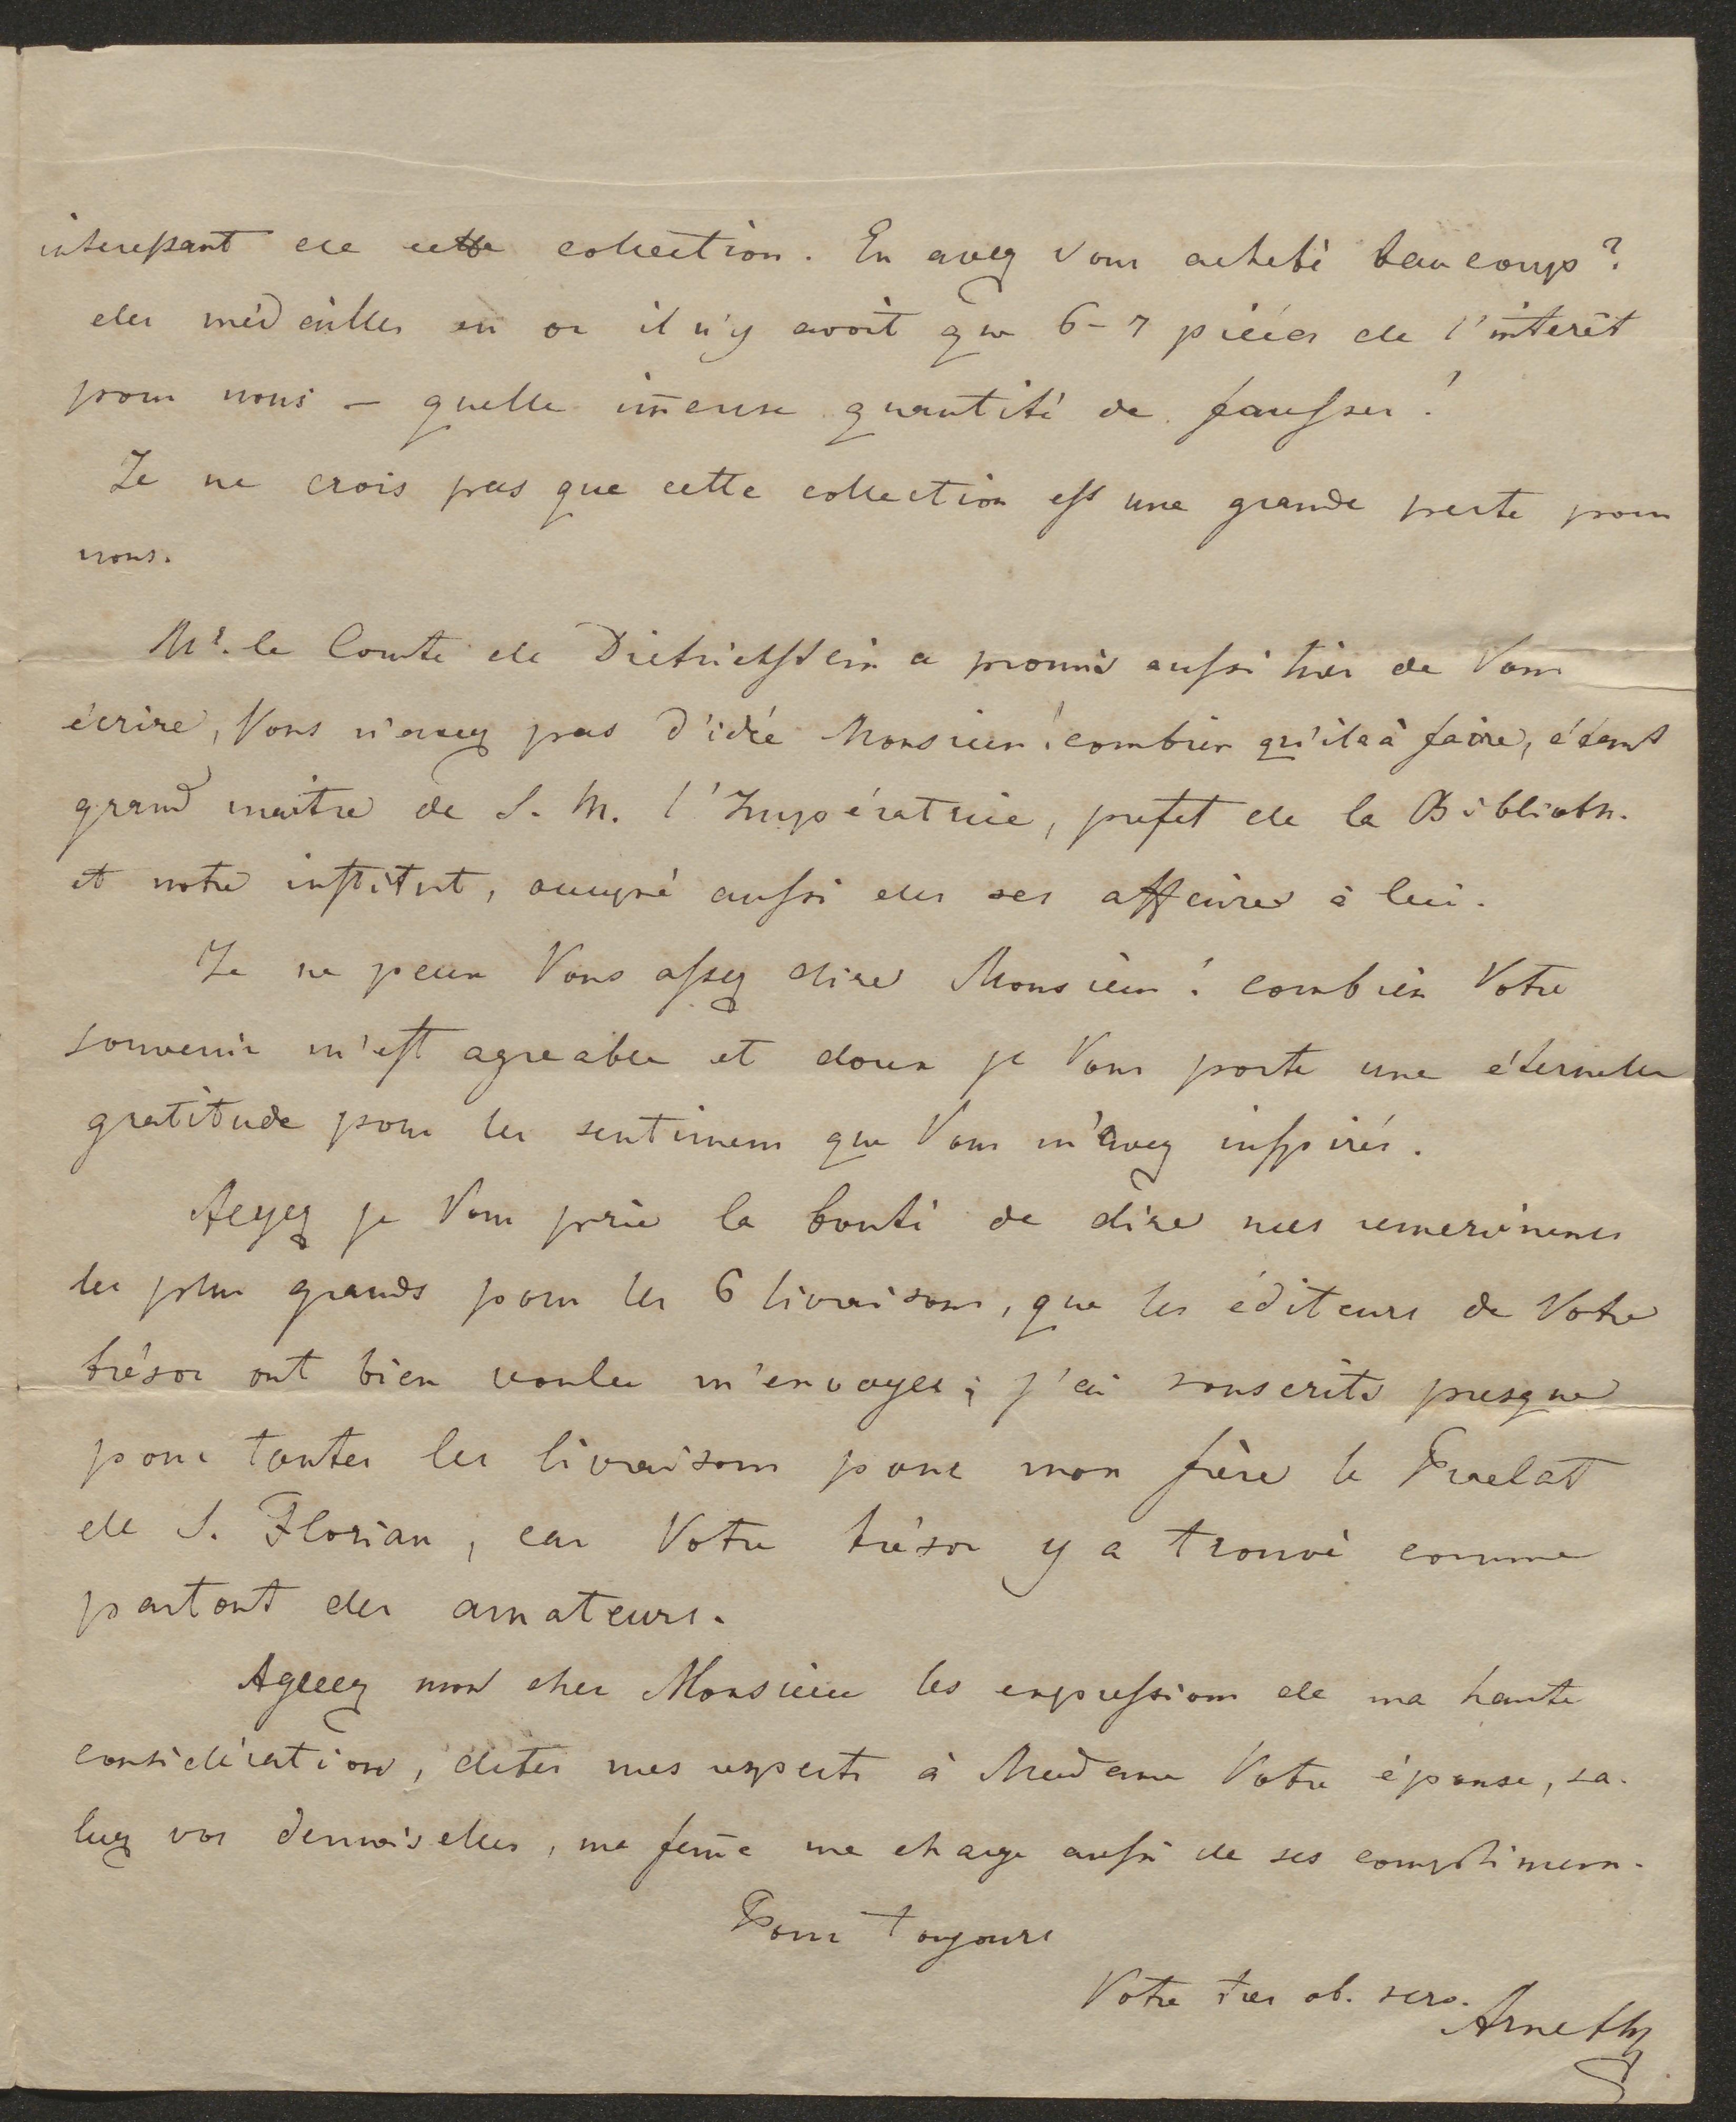 interessant de cette collection. En avez Vous acheté beaucoup?
des médailles en or il n'y avoit que 6-7 pièces de l'interêt
pour nous – quelle im̄ense quantité de fausses!
Je ne crois pas que cette collection est une grande perte pour
nous.
Mr. le Comte de Dietrichstein a promis aussi hier de Vous
écrire, Vous n'avez pas d'idée Monsieur! combien qu'il a à faire, étant
grand maitre de S. M. l'Impératrice, prefet de la Biblioth.
et notre institut, occupé aussi des ses affaires à lui.
Je ne peux Vous assez dire Monsieur! combien Votre
souvenir m'est agreable et doux je Vous porte une éternelle
gratitude pour les sentimens que Vous m'avez inspirés.
Ayez je Vous prie la bonté de dire mes remercimens
les plus grands pour les 6 livraisons, que les éditeurs de Votre
trésor ont bien voulu m'envoyer; j'ai souscrits presque
pour toutes les livraisons pour mon frère le Praelat
de S. Florian, car Votre trésor y a trouvé comme
partout des amateurs.
Agreez mon cher Monsieur les expressions de ma haute
considération, dites mes respects à Madame Votre épouse, sa-
luez vos demoiselles, ma fem̄e me charge aussi de ses complimens.
Pour toujours
Votre tres ob. serv.
Arneth